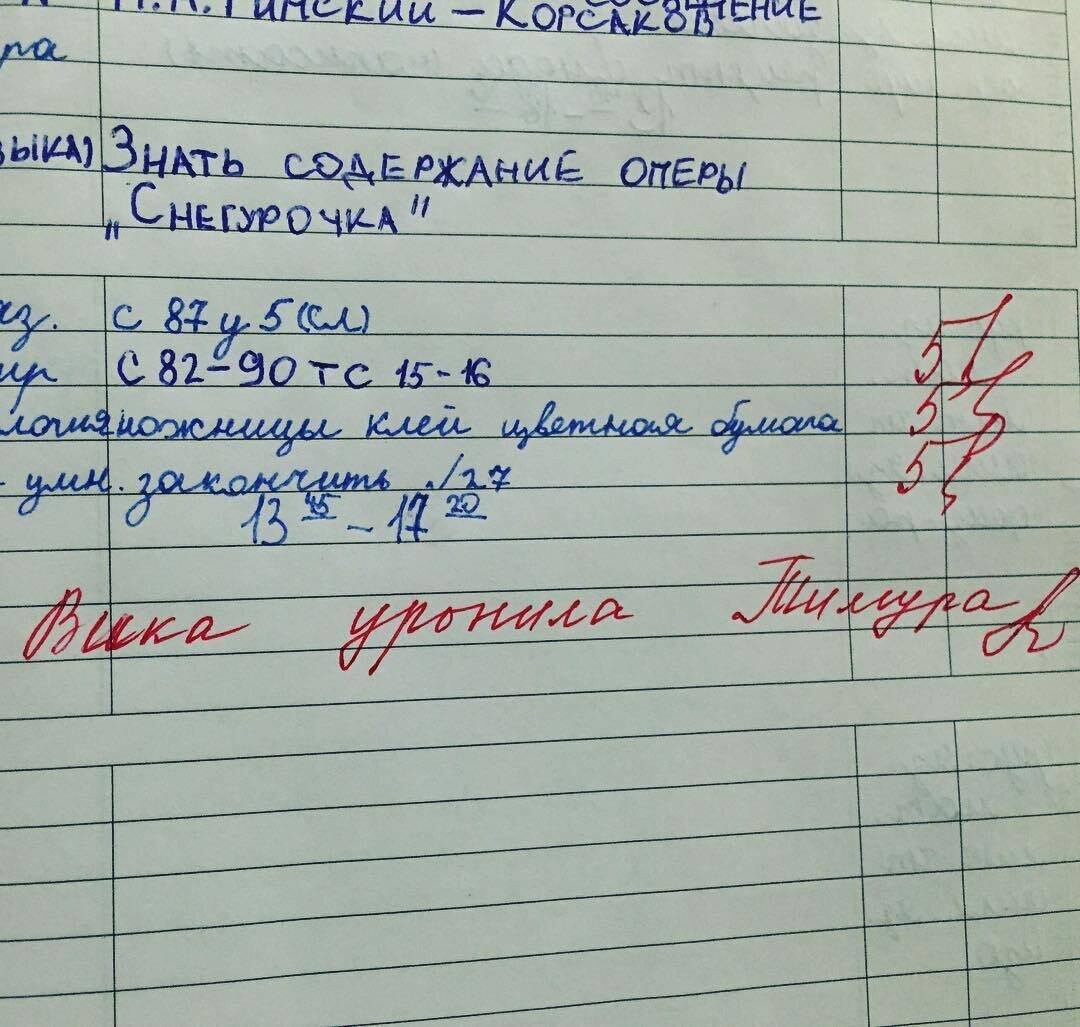 Н.А. Римский – Корсаков
ра
Знать содержание оперы
„Снегурочка"
с 87 у 5 (сл) 5
с 82–90 т с 15–16 5
ножницы клей цветная бумага 5
умн. закончить /27
13 45 – 17 20
Вика уронила Тимура